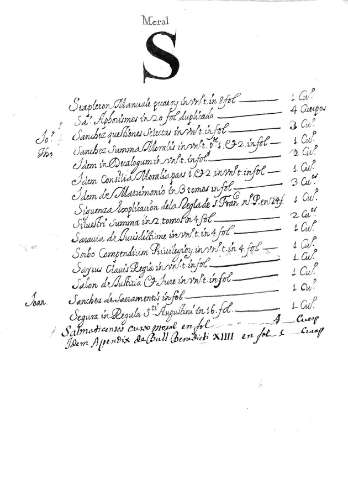 Meral
S
Stapleton Manuale peccatorum in vnº t. in 8 fol 1 Cu.º
Sa. Aphorismos in 20 fol. duplicado 4 Cuerpos
Jo. Sanchez questiones Selectas in vnº t. in fol 3 Cu.º
Tho. Sanchez Summa Moralis in vnº tº 1. et 2. in fol. 1 Cu.º
Idem in Decalogum in vnº t. in fol. 2 Cu.º
Idem Consilia Moralia pars 1 et 2 in vnº t. in fol 1 Cu.º
Idem de Matrimonio to 3 tomos in fol 3 Cu.os
Siguenza de la Regla de S. Fran. in 24 f. 1 Cu.º
Siluestri Summa in 2 tomos in 4 fol 2 Cu.os
in vnº t. in 4 fol. 1 Cu.º
Sorbo Compendium Privilegior in vnº t. in 4 fol. 1 Cu.º
Clavis Regia in vnº t. in fol. 1 Cu.º
Salon de Justicia et Jure in vnº t. in fol 1 Cu.º
Joan Sanchez de Sacramentis in fol 1 Cu.º
Segura in Regula S. Augustini en 16. fol. 1 Cu.º
Salmaticenses curso moral en fol 4 Cuerp
Idem Apendix de Bull Benedicti XIIII en fol 1 Cuerp